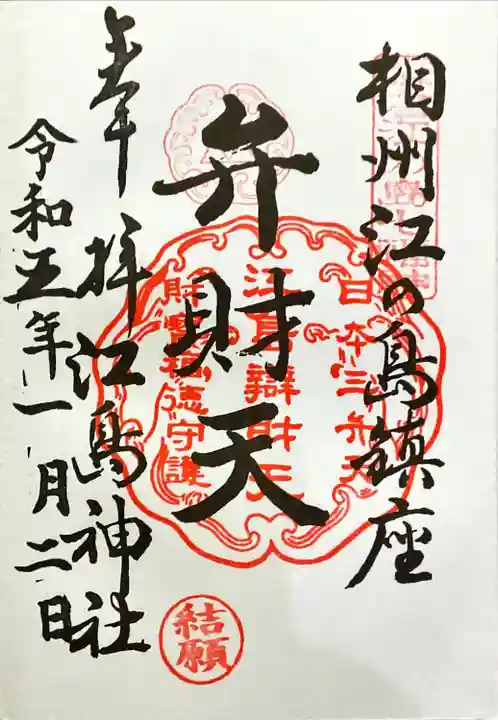 相州江の島鎮座
弁財天
奉拝江島神社
令和五年一月二日
日本三弁天
江島辯財天
財寶福徳守護
結願